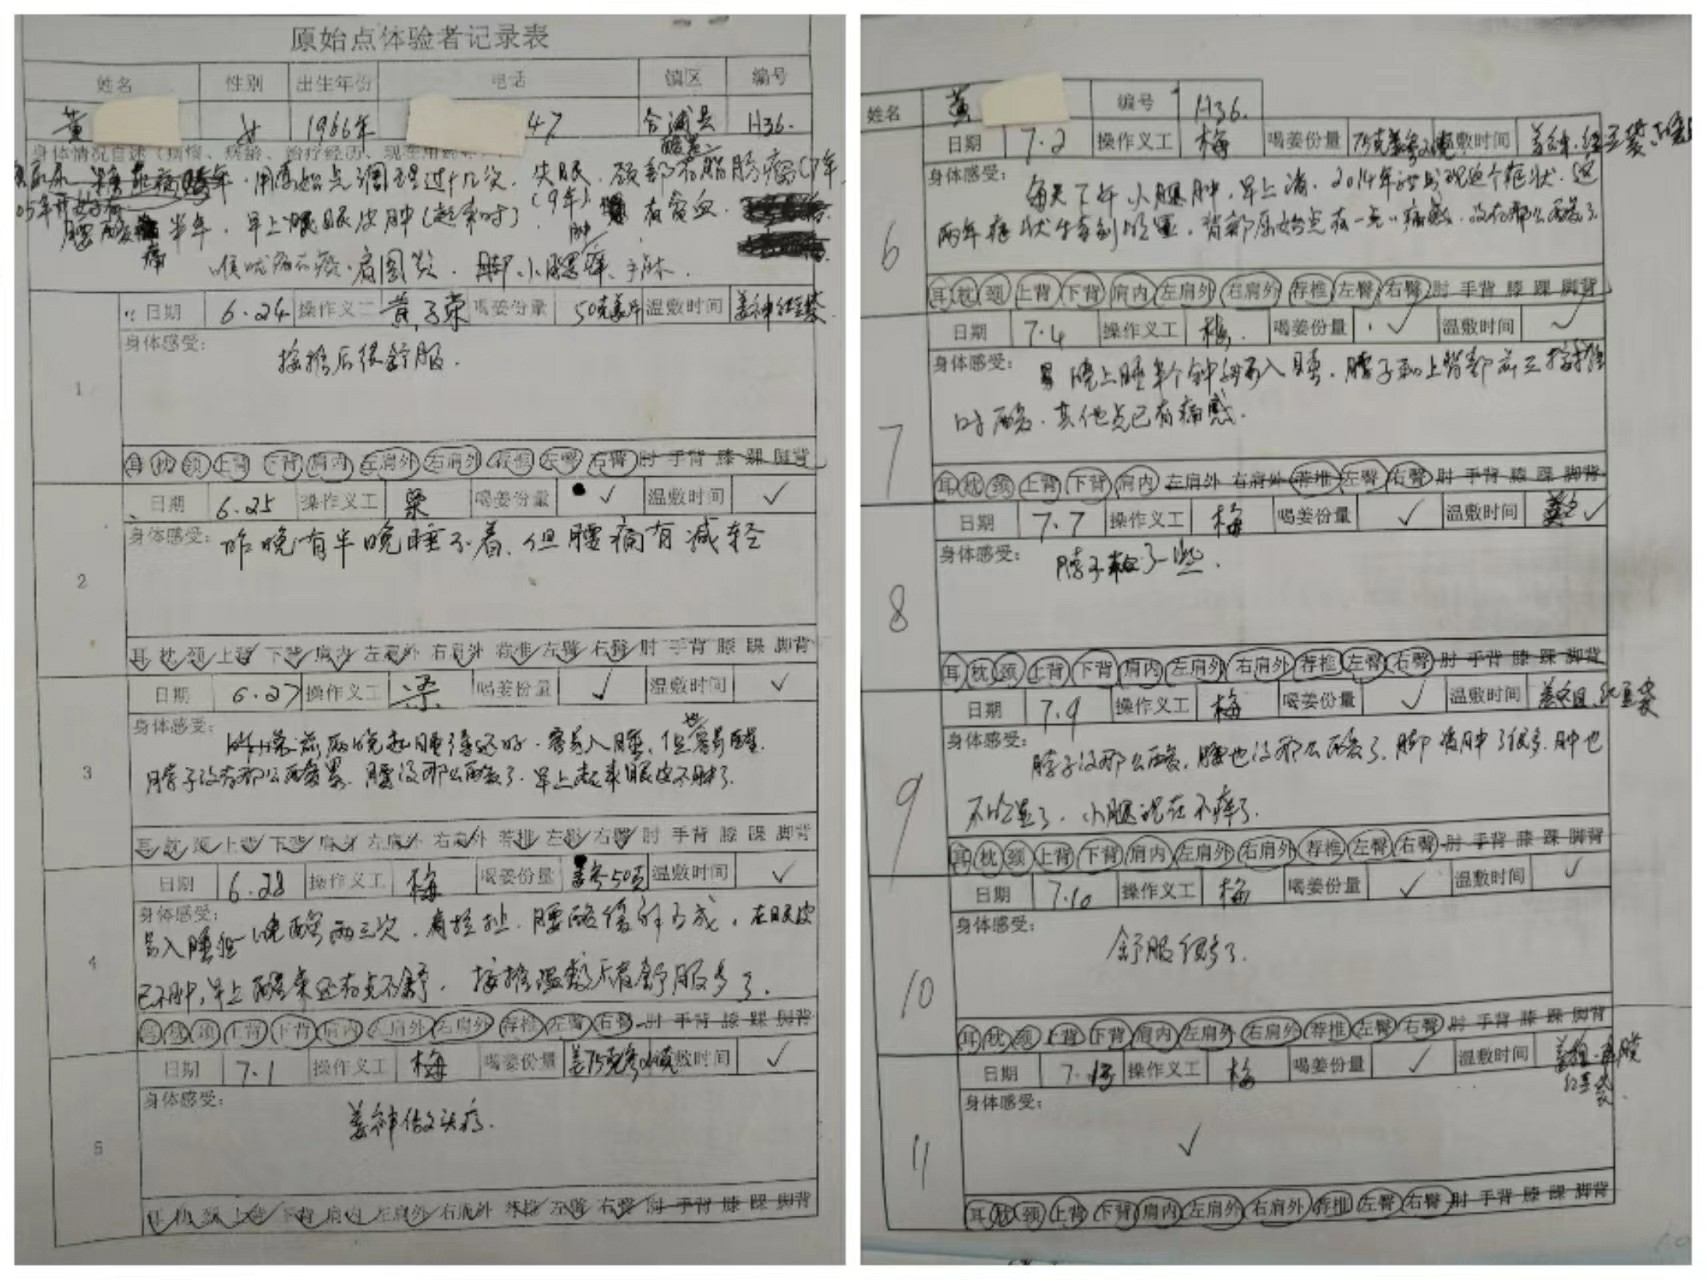 原始点体验者记录表
姓名 性别 出生年份 电话 镇区 编号
黄 女 1966年 47 合浦县 H36.
身体情况自述（病情、病龄、治疗经历、现在用药
用原始点调理过十几次. 失眠. 颈部有脂肪瘤(7年
05年开始 (9年) 有贫血
腰酸痛 半年, 早上眼皮肿(起来时)
喉咙痛 肩周炎. 脚肿 小腿痒、手麻.
1
日期 6.24 操作义工 黄 荣 喝姜份量 50克姜片 温敷时间 姜神红豆袋
身体感受:
按推后很舒服.
耳 枕 颈 上背 下背 肩内 左肩外 右肩外 荐椎 左臀 右臀 肘 手背 膝 踝 脚背
2
日期 6.25 操作义工 梁 喝姜份量 ✓ 温敷时间 ✓
身体感受: 昨晚有半晚睡不着, 但腰痛有减轻
耳 枕 颈 上背 下背 肩内 左肩外 右肩外 荐椎 左臀 右臀 肘 手背 膝 踝 脚背
3
日期 6.27 操作义工 梁 喝姜份量 ✓ 温敷时间 ✓
身体感受:
前两晚 睡得还好. 容易入睡, 但也容易醒.
脖子没有那么酸累. 腰没那么酸了. 早上起来眼皮不肿了.
耳 枕 颈 上背 下背 肩内 左肩外 右肩外 荐椎 左臀 右臀 肘 手背 膝 踝 脚背
4
日期 6.28 操作义工 梅 喝姜份量 姜 50克 温敷时间 ✓
身体感受:
易入睡但 晚醒两三次, 腰酸缓解 成, 在眼皮
已不肿, 早上醒来还有点不舒. 按推温敷后有舒服多了.
耳 枕 颈 上背 下背 肩内 左肩外 右肩外 荐椎 左臀 右臀 肘 手背 膝 踝 脚背
5
日期 7.1 操作义工 梅 喝姜份量 姜75克参 温敷时间 ✓
身体感受:
姜神做头疗.
耳 枕 颈 上背 下背 肩内 左肩外 右肩外 荐椎 左臀 右臀 肘 手背 膝 踝 脚背
姓名 黄 编号 H36.
6
日期 7.2 操作义工 梅 喝姜份量 75克姜参 温敷时间 姜神. 红豆袋
身体感受:
每天下午小腿肿, 早上消. 2014年 出现这个症状. 这
两年症状 特别明显, 背部原始点有一点痛感. 没有那么酸了
耳 枕 颈 上背 下背 肩内 左肩外 右肩外 荐椎 左臀 右臀 肘 手背 膝 踝 脚背
7
日期 7.4 操作义工 梅. 喝姜份量 ✓ 温敷时间 ✓
身体感受:
晚上睡半个钟 入睡. 脖子和上背部 按推
时酸. 其他点已有痛感.
耳 枕 颈 上背 下背 肩内 左肩外 右肩外 荐椎 左臀 右臀 肘 手背 膝 踝 脚背
8
日期 7.7 操作义工 梅 喝姜份量 ✓ 温敷时间 ✓
身体感受:
脖子松了一些.
耳 枕 颈 上背 下背 肩内 左肩外 右肩外 荐椎 左臀 右臀 肘 手背 膝 踝 脚背
9
日期 7.9 操作义工 梅 喝姜份量 ✓ 温敷时间 红豆袋
身体感受:
脖子没那么酸, 腰也没那么酸了. 脚 肿了很多. 肿也
不明显了. 小腿现在不痒了.
耳 枕 颈 上背 下背 肩内 左肩外 右肩外 荐椎 左臀 右臀 肘 手背 膝 踝 脚背
10
日期 7.10 操作义工 梅 喝姜份量 ✓ 温敷时间 ✓
身体感受:
舒服很多了.
耳 枕 颈 上背 下背 肩内 左肩外 右肩外 荐椎 左臀 右臀 肘 手背 膝 踝 脚背
11
日期 7. 操作义工 梅 喝姜份量 ✓ 温敷时间 红豆袋.
身体感受:
✓
耳 枕 颈 上背 下背 肩内 左肩外 右肩外 荐椎 左臀 右臀 肘 手背 膝 踝 脚背